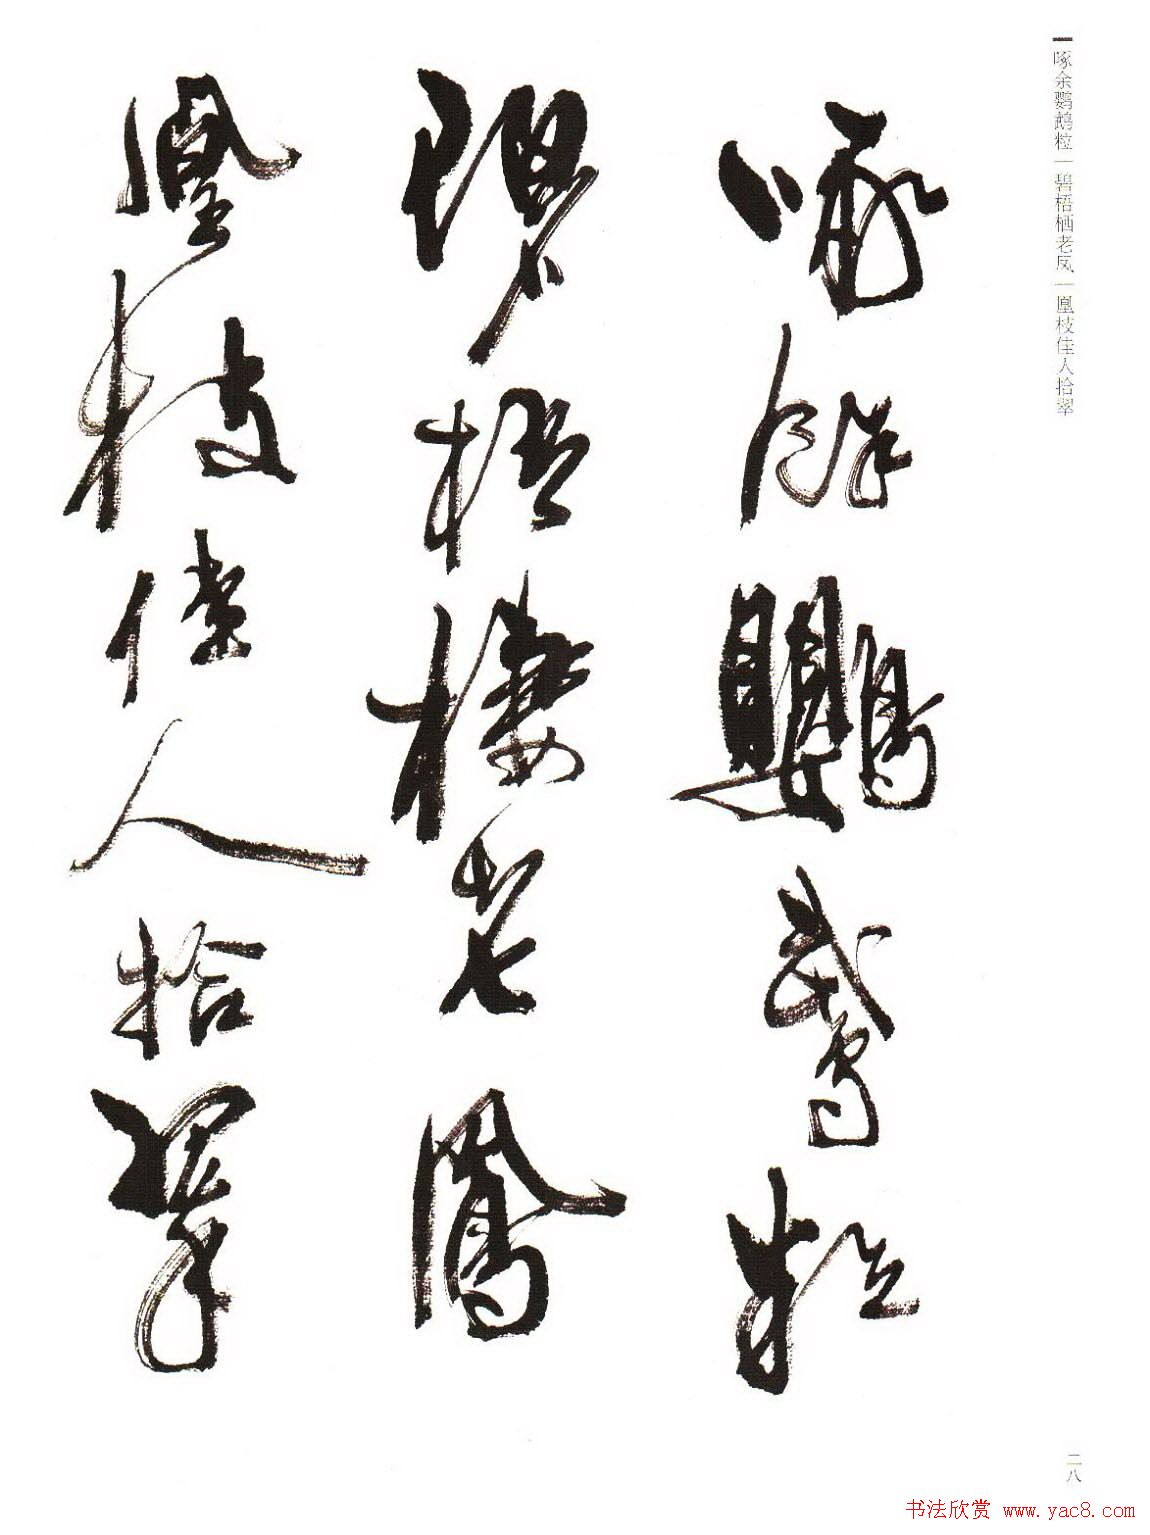 啄余鹦鹉粒|碧梧栖老凤|凰枝佳人拾翠
啄餘鸚鵡粒
碧梧棲老鳳
凰枝佳人拾翠
二八
书法欣赏 www.yac8.com